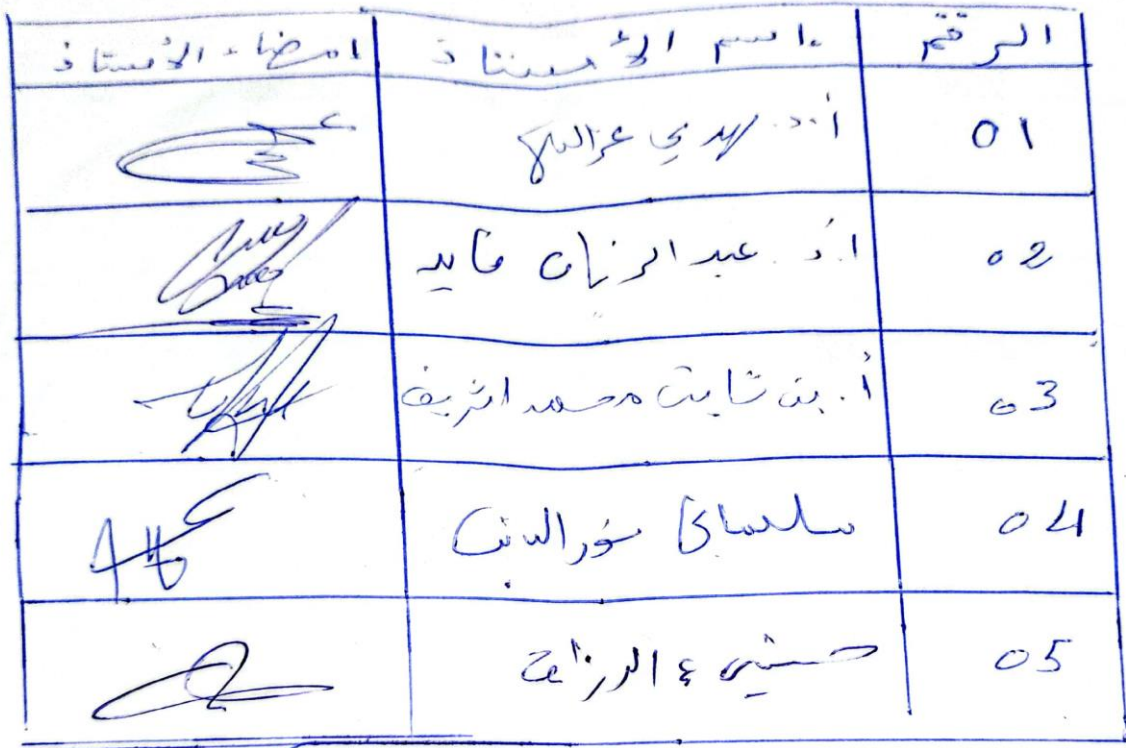 الرقم اسم الأستاذ امضاء الأستاذ
01 أ.د. مهدي عزالدين
02 أ.د. عبد الرزاق قايد
03 أ. بن ثابت محمد الشريف
04 سليماني نورالدين
05 حسيني ع الرزاق